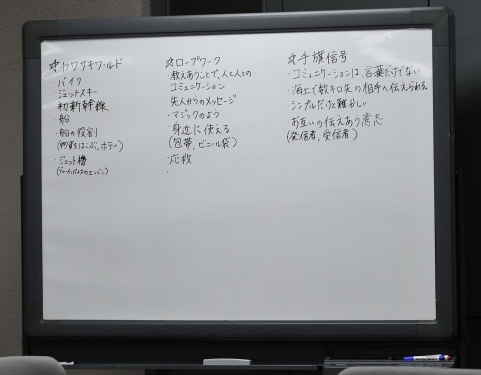 ☆カワサキワールド
・バイク
ジェットスキー
初新幹線
・船
・船の役割
(物資をはこぶ、ホテル)
・ジェット機
☆ロープワーク
・教えあうことで、人と人との
コミュニケーション
・先人からのメッセージ
・マジックのよう
・身近に使える
(包帯、ビニール袋)
・応救
・
☆手旗信号
・コミュニケーションは、言葉だけでない
・海上で数キロ先の相手へ伝えられる
・シンプルだけど難しい
お互いの伝えあう意志
(発信者、受信者)